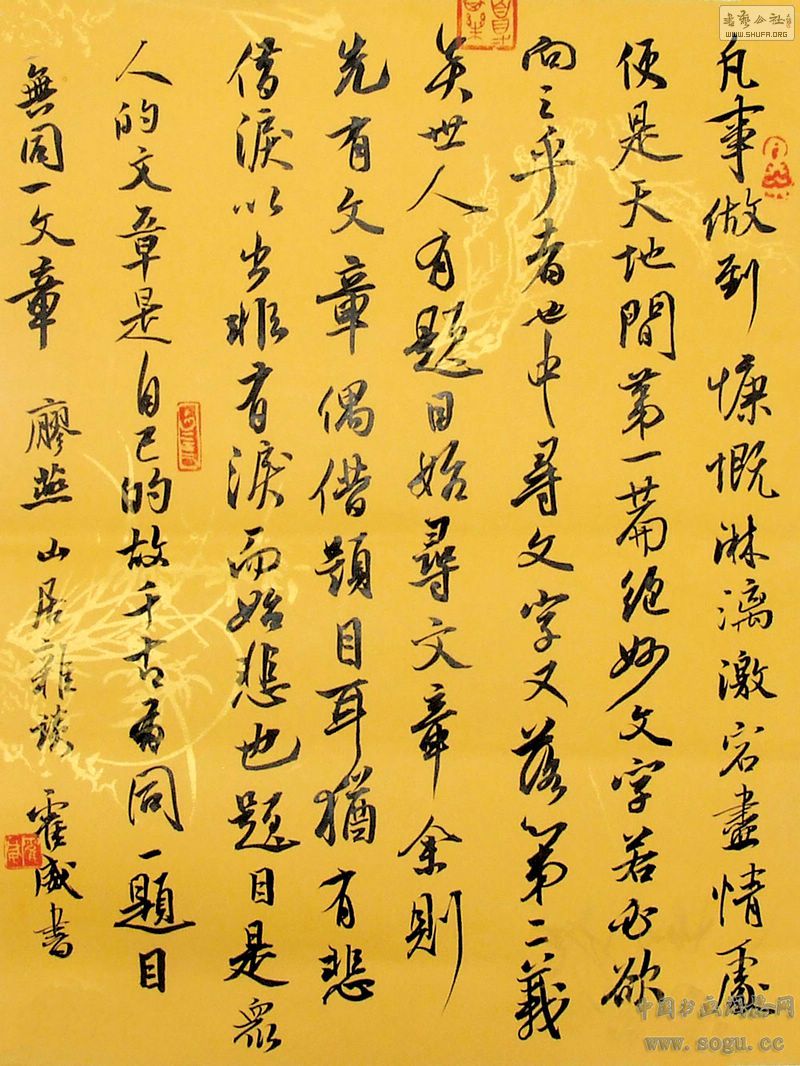 凡事做到慷慨淋漓激宕盡情處
便是天地間第一篇絕妙文字若必欲
向之乎者也中尋文字又落第二義
矣世人有題目始尋文章余則
先有文章偶借題目耳猶有悲
借淚以出非有淚而始悲也題目是眾
人的文章是自己的故千古有同一題目
無同一文章 廖燕山居雜談 霍威書
书艺公社
www.SHUFA.ORG
www.sogu.cc